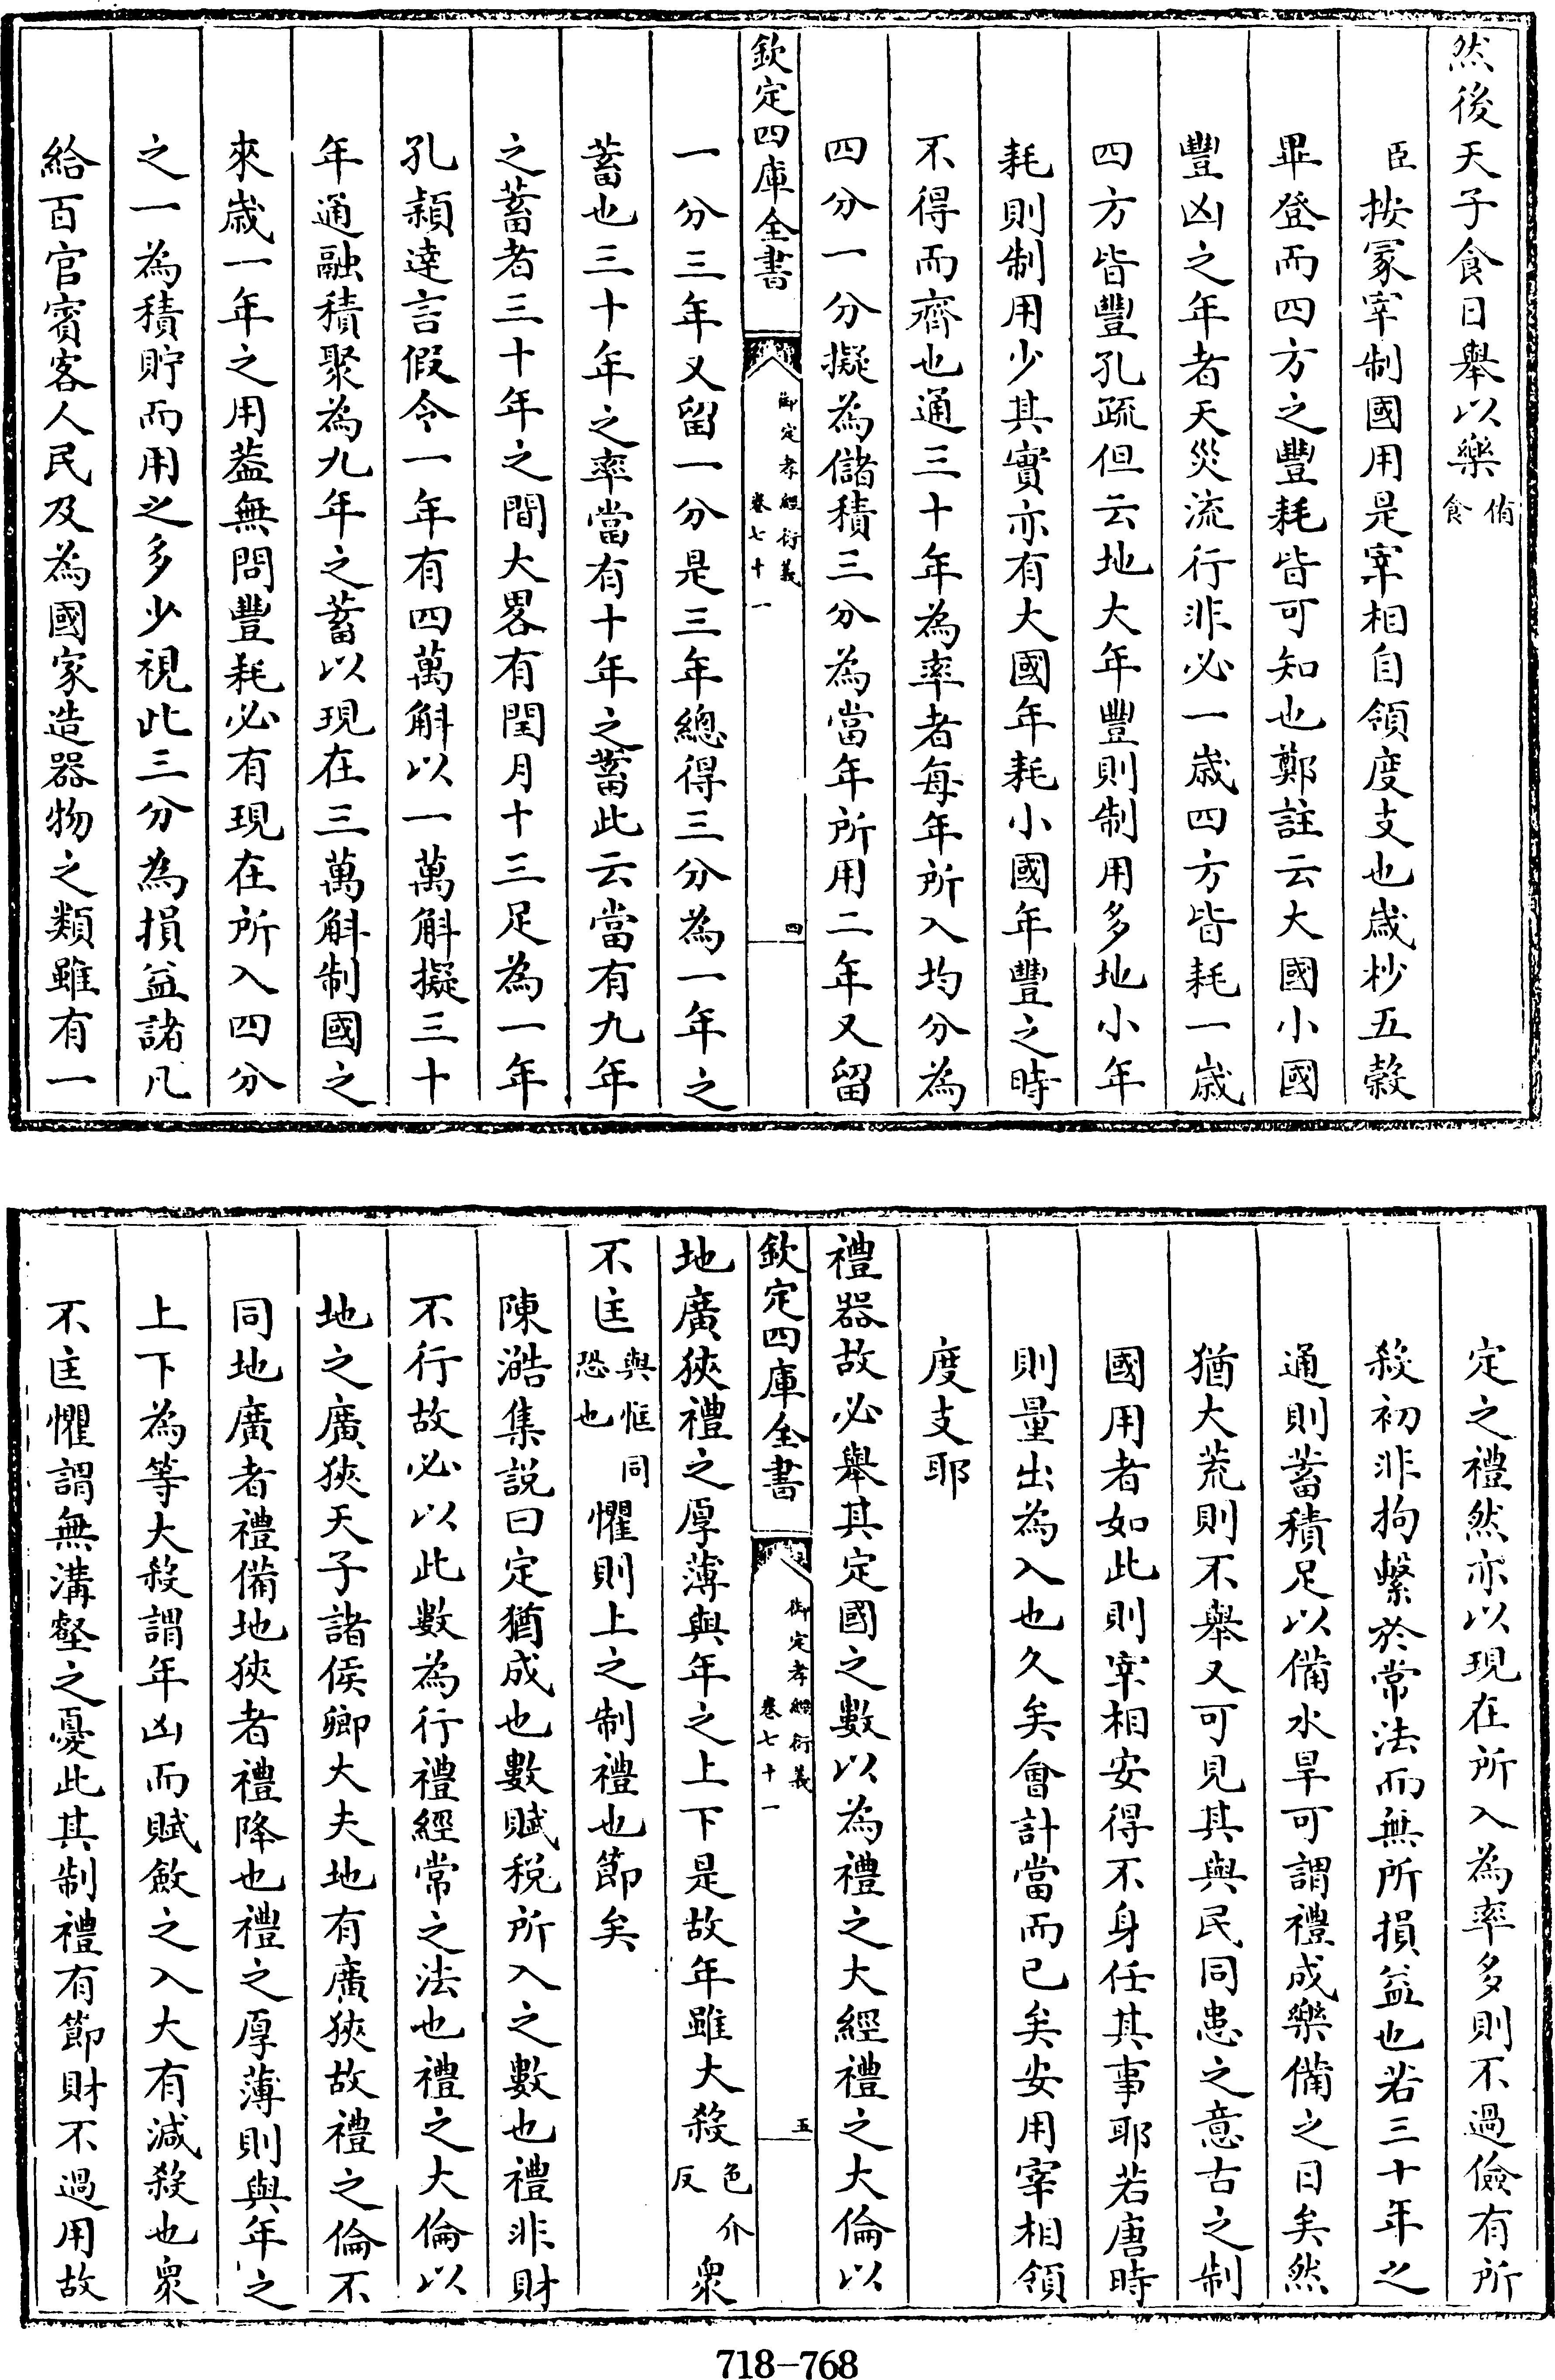 然後天子食日舉以樂侑食
臣按冢宰制國用是宰相自領度支也歲杪五穀
畢登而四方之豐耗皆可知也鄭註云大國小國
豐凶之年者天災流行非必一歲四方皆耗一歲
四方皆豐孔疏但云地大年豐則制用多地小年
耗則制用少其實亦有大國年耗小國年豐之時
不得而齊也通三十年為率者每年所入均分為
四分一分擬為儲積三分為當年所用二年又留
欽定四庫全書 御定孝經衍義 卷七十一 四
一分三年又留一分是三年總得三分為一年之
蓄也三十年之率當有十年之蓄此云當有九年
之蓄者三十年之間大畧有閏月十三足為一年
孔穎達言假令一年有四萬斛以一萬斛擬三十
年通融積聚為九年之蓄以現在三萬斛制國之
來歲一年之用葢無問豐耗必有現在所入四分
之一為積貯而用之多少視此三分為損益諸凡
給百官賓客人民及為國家造器物之類雖有一
定之禮然亦以現在所入為率多則不過儉有所
殺初非拘繫於常法而無所損益也若三十年之
通則蓄積足以備水旱可謂禮成樂備之日矣然
猶大荒則不舉又可見其與民同患之意古之制
國用者如此則宰相安得不身任其事耶若唐時
則量出為入也久矣會計當而已矣安用宰相領
度支耶
禮器故必舉其定國之數以為禮之大經禮之大倫以
欽定四庫全書 御定孝經衍義 卷七十一 五
地廣狹禮之厚薄與年之上下是故年雖大殺色介反衆
不匡與恇同恐也懼則上之制禮也節矣
陳澔集說曰定猶成也數賦稅所入之數也禮非財
不行故必以此數為行禮經常之法也禮之大倫以
地之廣狹天子諸侯卿大夫地有廣狹故禮之倫不
同地廣者禮備地狹者禮降也禮之厚薄則與年之
上下為等大殺謂年凶而賦斂之入大有減殺也衆
不匡懼謂無溝壑之憂此其制禮有節財不過用故
718-768